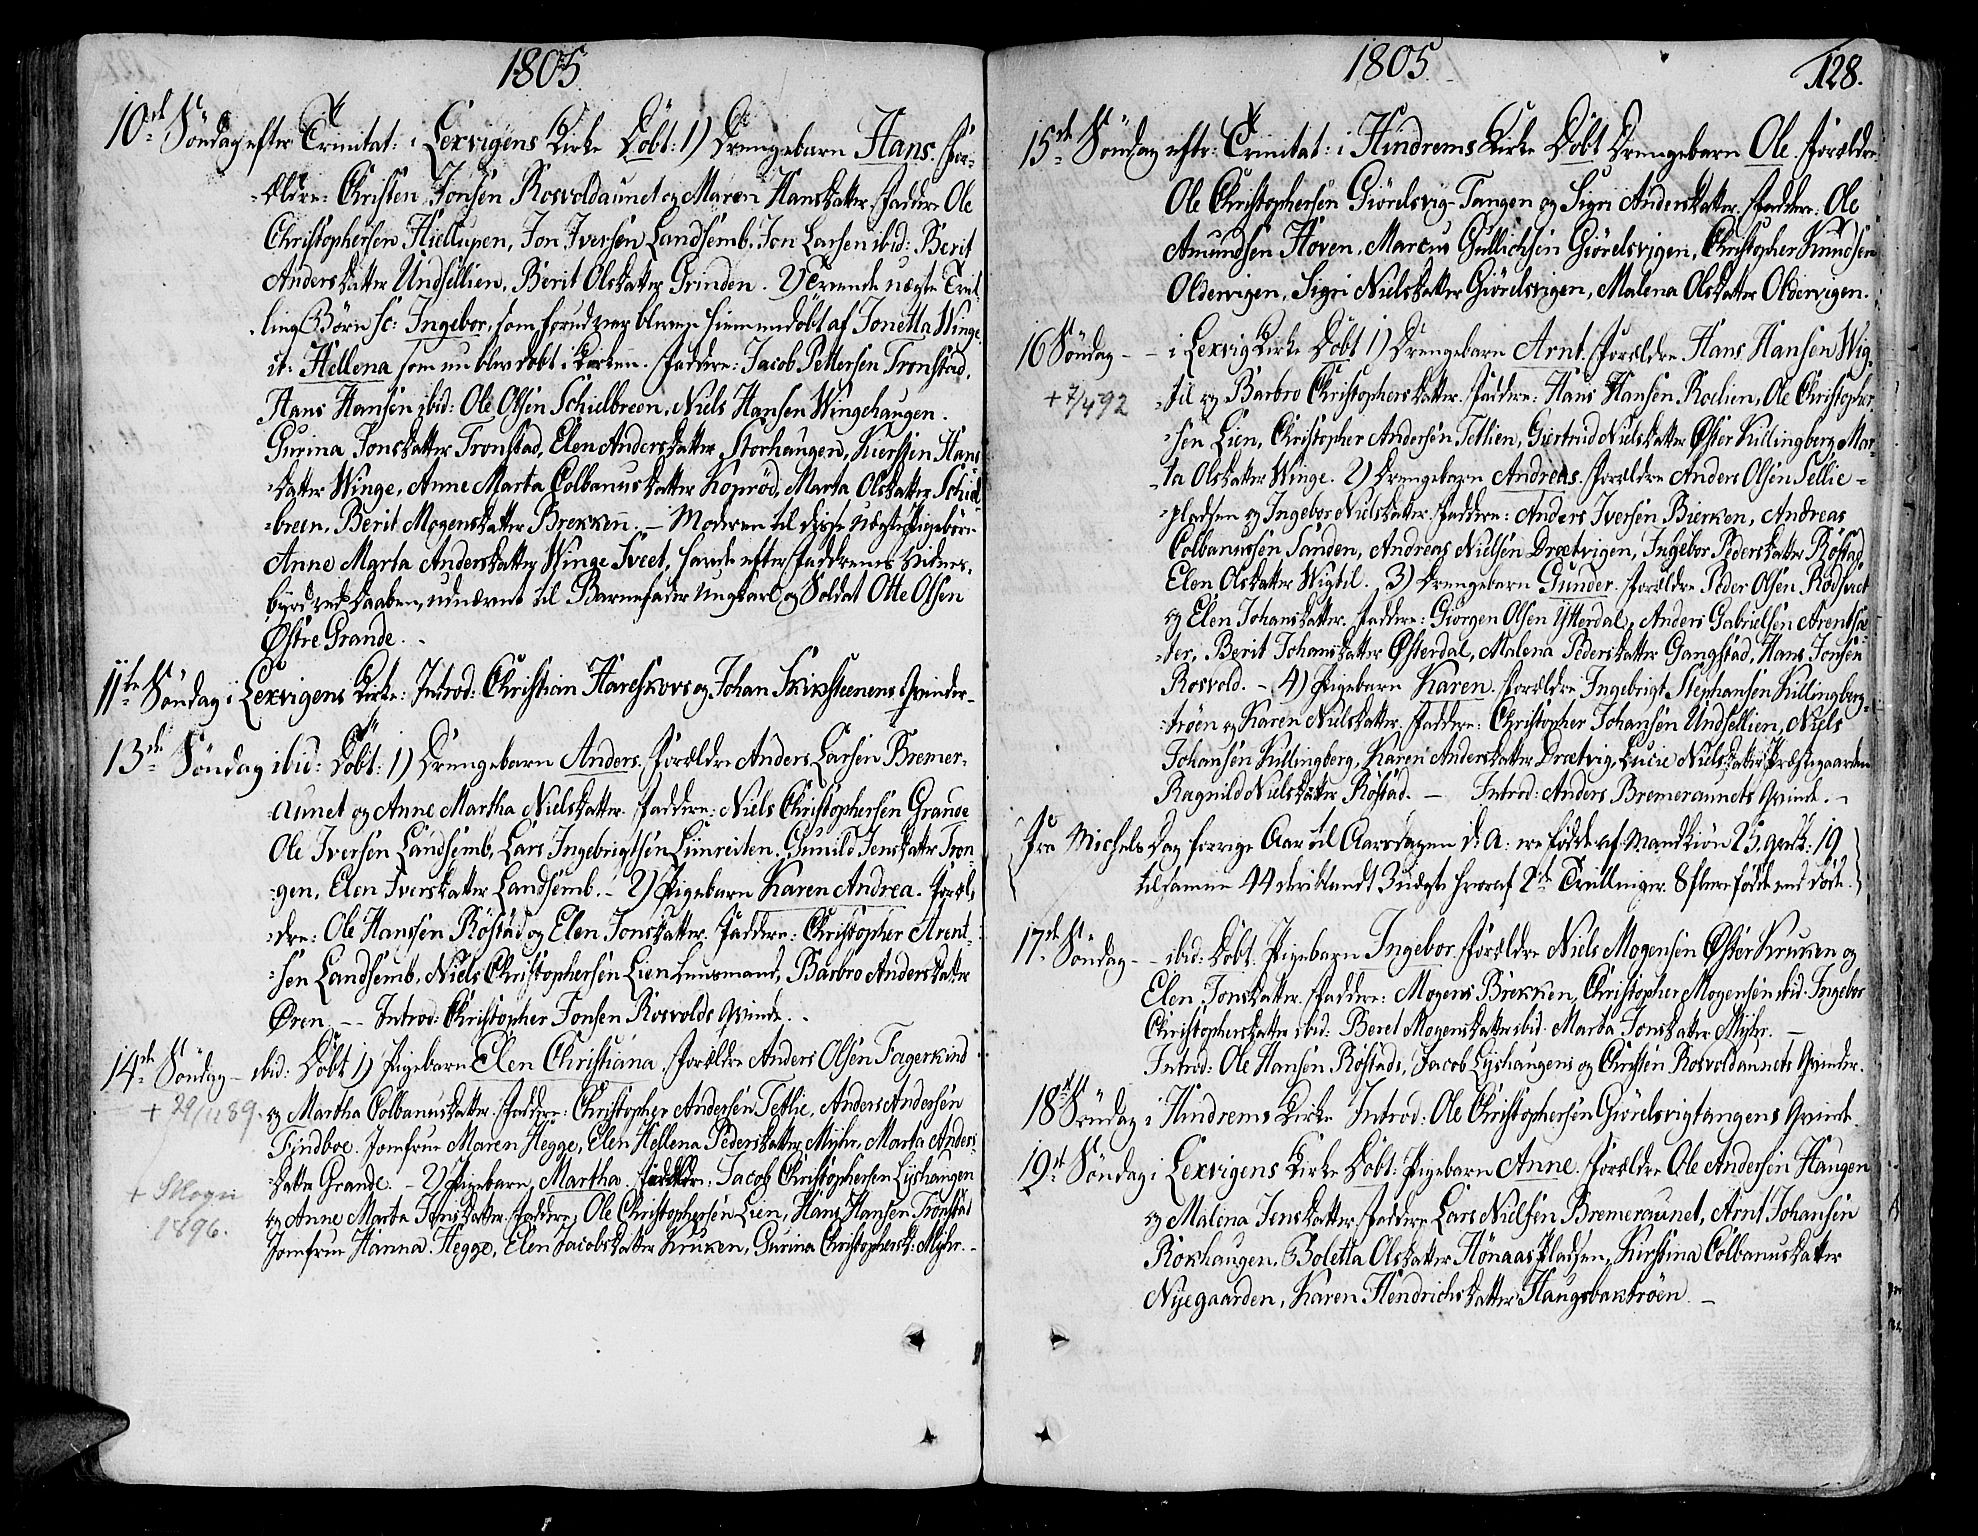 1805.
10de Søndag efter Trinitat: i Lexvigens Kirke Døbt: 1) Drengebarn Hans. For-
ældre: Christen Jonsen Rosvoldaunet og Maren Hansdatter. Faddere Ole
Christophersen Hiellupen, Jon Iversen Landsemb. Jon Larsen ibid: Berit
Andersdatter Undsellien, Berit Olsdatter Grinden. 2) Trende uægte Tril-
ling Børn sc: Ingebor, som forud var bleven hiemmedøbt af Jonetta Winge
it: Hellena som nu blev døbt i Kirken. Faddere: Jacob Pettersen Tronstad,
Hans Hansen ibid: Ole Olsen Schielbreen, Niels Hansen Wingehaugen.
Gurina Jonsdatter Tronstad, Elen Andersdatter Storhaugen, Kierstin Hans
datter Winge, Anne Marta Colbanusdatter Koprød, Marta Olsdatter Schiel-
breen, Berit Mogensdatter Brekken. - Moderen til disse uægte Pigebørn
Anne Marta Andersdatter Winge Sveet, havde efter Faddrenes Vidnes-
byrd ved Daaben, udnævnt til Barnefader Ungkarl og Soldat Otte Olsen
Østre Grande. -
11te Søndag i Lexvigens Kirke: Introd: Christian Hareskovs og Johan Skiksteenens Qvinder-
13de Søndag ibid: Døbt: 1) Drengebarn Anders. Forældre Anders Larsen Bremer-
aunet og Anne Martha Nielsdatter. Faddere: Niels Christophersen Grande
Ole Iversen Landsemb, Lars Ingebrigtsen Limreiten. Gunild Jensdatter Tron-
gen, Elen Iversdatter Landsemb. - 2) Pigebarn Karen Andrea. Foræl-
dre: Ole Hanssen Røstad og Elen Jonsdatter. Faddere: Christopher Arent-
sen Landsemb, Niels Christophersen Lien Lensmand, Barbro Andersdatter
Øren. -- Introd: Christopher Jonsen Rosvolds Qvinde. -
14de Søndag - ibid: Døbt 1) Pigebarn Elen Christiana. Forældre Anders Olsen Fagerkind
+ 29/11 89.
og Martha Colbanusdatter. Faddere: Christopher Andersen Tetlie, Anders Andersen
Findboe. Jomfrue Maren Hegge, Elen Hellena Pedersdatter Myhr, Marta Anders-
datter Grande. - 2) Pigebarn Martha. Forældre: Jacob Christophersen Lyshaugen
+ Skogn
1896.
og Anne Marta Jonsdatter. Faddere: Ole Christophersen Lien, Hans Hansen Tronstad
Jomfrue Hanna Hegge, Elen Jacobsdatter Kruken, Gurina Christophersd: Myhr. -
1805.
128.
15de Søndag eftr: Trinitat: i Hindrems Kirke Døbt Drengebarn Ole. Forældre
Ole Christophersen Giørelsvig-Tangen og Sigri Andersdatter. Faddere: Ole
Amundsen Hoven, Marcus Gullichsen Giørelsvigen, Christopher Knudsen
Oldervigen, Sigri Nielsdatter Giørelsvigen, Malena Olsdatter Oldervigen.
16 Søndag - - i Lexvig Kirke Døbt 1) Drengebarn Arnt. Forældre Hans Hansen Wig-
+ 7/4 92
til og Barbro Christophersdatter. Faddere: Hans Hansen Roelien, Ole Christopher-
sen Lien, Christopher Andersen Tetlien, Giertrud Nielsdatter Øster Killingberg, Mar-
ta Olsdatter Winge. 2) Drengebarn Andreas. Forældre Anders Olsen Sellie-
pladsen og Ingebor Nielsdatter. Faddere: Anders Iversen Bierken, Andreas
Colbanussen Sanden, Andreas Nielsen Drætvigen, Ingebor Pedersdatter Røstad,
Elen Olsdatter Wigtil. 3) Drengebarn Gunder. Forældre Peder Olsen Rødsveet
og Elen Johansdatter. Faddere: Giørgen Olsen Ytterdal, Anders Gabrielsen Arentsæ-
ter, Berit Johansdatter Østerdal, Malena Pedersdatter Gangstad, Hans Jonsen
Rosvold. - 4) Pigebarn Karen. Forældre Ingebrigt Stephansen Killingberg-
trøen og Karen Nielsdatter. Faddere: Christopher Johansen Undsellien, Niels
Johansen Killingberg, Karen Andersdatter Drætvig, Lucie Nielsdatter Præstegaarden
Ragnild Nielsdatter Røstad. - Introd: Anders Bremeraunets Qvinde. -
Fra Michels Dag forrige Aar til Aarsdagen d: A: ere fødde af Mandkiøn 25. Qvk: 19
tilsamme 44 deriblandt 3 uægte hvoraf 2de Trillinger. 8 flere fødde end døde.
17de Søndag - - ibid: Døbt. Pigebarn Ingebor. Forældre Niels Mogensen Øster Kruken og
Elen Jonsdatter. Faddere: Mogens Brekken, Christopher Mogensen ibid. Ingebor
Christophersdatter ibid: Beret Mogensdatter ibid. Marta Jonsdatter Myhr. -
Introd: Ole Hansen Røstads, Jacob Lyshaugens og Christen Rosvoldaunets Qvinder.
18de Søndag i Hindrems Kirke Introd: Ole Christophersen Giørelsvigtangens Qvinde.
19de Søndag i Lexvigens Kirke Døbt: Pigebarn Anne. Forældre Ole Andersen Haugen
og Malena Jensdatter. Faddere Lars Nielsen Bremeraunet, Arnt Johansen
Rokhaugen. Boletta Olsdatter Hønaaspladsen, Kirstina Colbanusdatter
Nyegaarden, Karen Hendrichsdatter Haugsbaktrøen. -